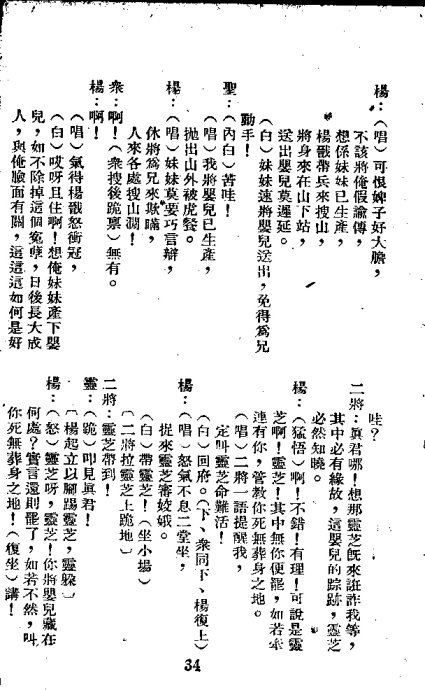 楊：（唱）可恨婢子好大膽，
不該將俺假諭傳，
想係妹妹已生產，
楊戩帶兵來搜山，
將身來在山下站，
送出嬰兒莫遲延。
（白）妹妹速將嬰兒送出，免得爲兄
動手！
聖：（內白）苦哇！
（唱）我將嬰兒已生產，
拋出山外被虎餐。
楊：（唱）妹妹莫要巧言辯，
休將爲兄來欺瞞，
人來各處搜山澗！
衆：啊！（衆搜後跪禀）無有。
楊：啊！
（唱）氣得楊戩怒衝冠，
（白）哎呀且住啊！想俺妹妹產下嬰
兒，如不除掉這個寃孽，日後長大成
人，與俺臉面有關，這這這如何是好
哇？
二將：眞君哪！想那靈芝旣來誑詐我等，
其中必有緣故，這嬰兒的踪跡，靈芝
必然知曉。
楊：（猛悟）啊！不錯！有理！可說是靈
芝啊！靈芝！其中無你便罷，如若牽
連有你，管敎你死無葬身之地。
（唱）二將一語提醒我，
定叫靈芝命難活！
（白）回府。（下、衆同下、楊復上）
楊：（唱）怒氣不息二堂坐，
提來靈芝審姣娥。
（白）帶靈芝！（坐小場）
〔二將拉靈芝上跪地〕
二將：靈芝帶到！
靈：（跪）叩見眞君！
〔楊起立以脚踢靈芝，靈躱〕
楊：（怒）靈芝呀，靈芝！你將嬰兒藏在
何處？實言還則罷了，如若不然，叫
你死無葬身之地！（復坐）講！
34